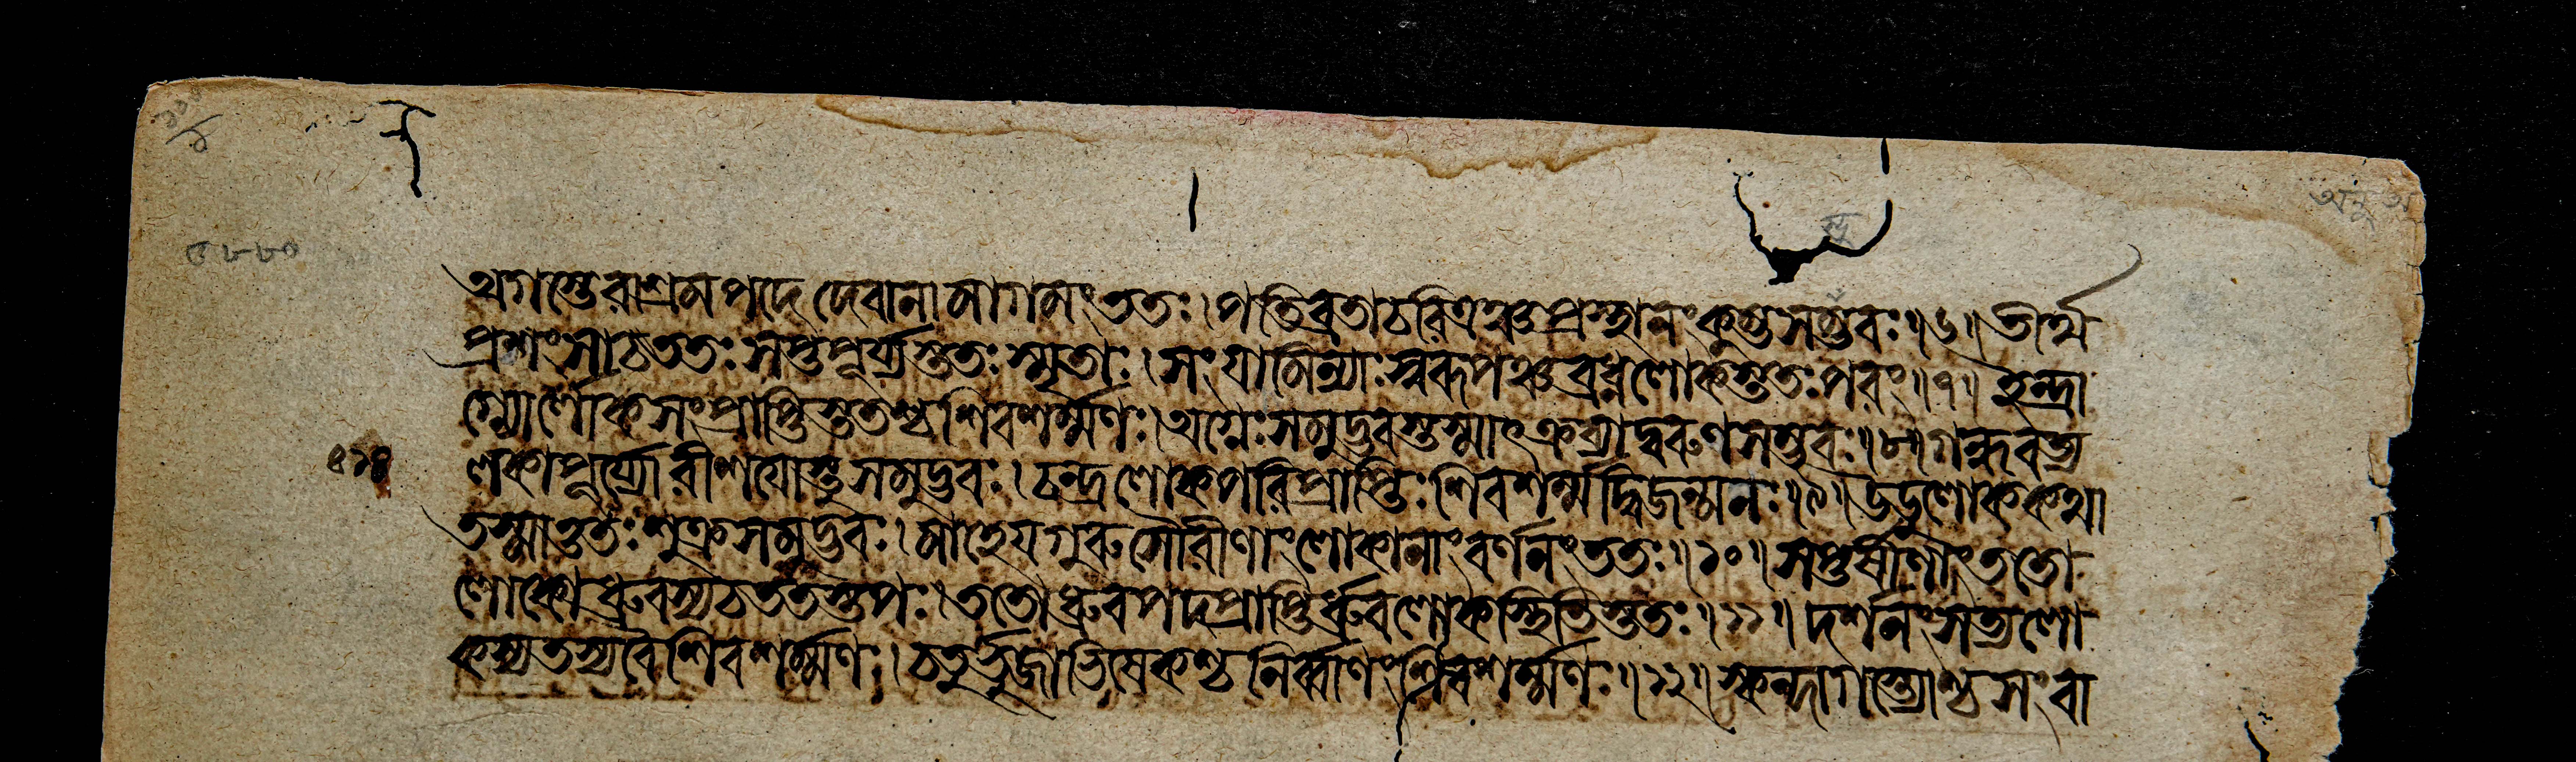 অগস্তেরাশ্রমপদে দেবানামাগমঃ ততঃ। পতিব্রতাচরিত্রঞ্চ প্রস্থানং কুম্ভসম্ভবঃ॥৬॥ তীর্থ
প্রশংসা চ ততঃ সপ্তপূর্য্যস্ততঃ স্মৃতাঃ। সংযামিন্যাঃ স্বরূপঞ্চ ব্রধ্নলোকস্ততঃ পরং॥৭॥ ইন্দ্রা
গ্ন্যোর্লোকসংপ্রাপ্তিস্ততশ্চ শিবশর্ম্মণঃ। অগ্নেঃ সমুদ্ভবস্তস্মাৎ ক্রব্যাদ্বরুণসম্ভবঃ॥৮॥ গন্ধবত্য
লকাপূর্য্যোরীশযোস্তু সমুদ্ভবঃ। চন্দ্রলোকপরিপ্রাপ্তিঃ শিবশর্ম্মদ্বিজন্মনঃ॥৯॥ উডুলোককথা
তস্মাত্ততঃ শুক্রসমুদ্ভবঃ। মাহেযগুরুসৌরীণাং লোকানাং বর্ণনং ততঃ॥১০॥ সপ্তর্ষীণাং ততো
লোকো ধ্রুবস্য চ ততস্তপঃ। ততো ধ্রুবপদপ্রাপ্তির্ধ্রুবলোকস্থিতিস্ততঃ॥১১॥ দর্শনং সত্যলো
কস্য তস্য বৈ শিবশর্ম্মণঃ। চতুর্ভুজাভিষেকশ্চ নির্ব্বাণং শিবশর্ম্মণঃ॥১২॥ স্কন্দাগস্ত্যোশ্চ সংবা